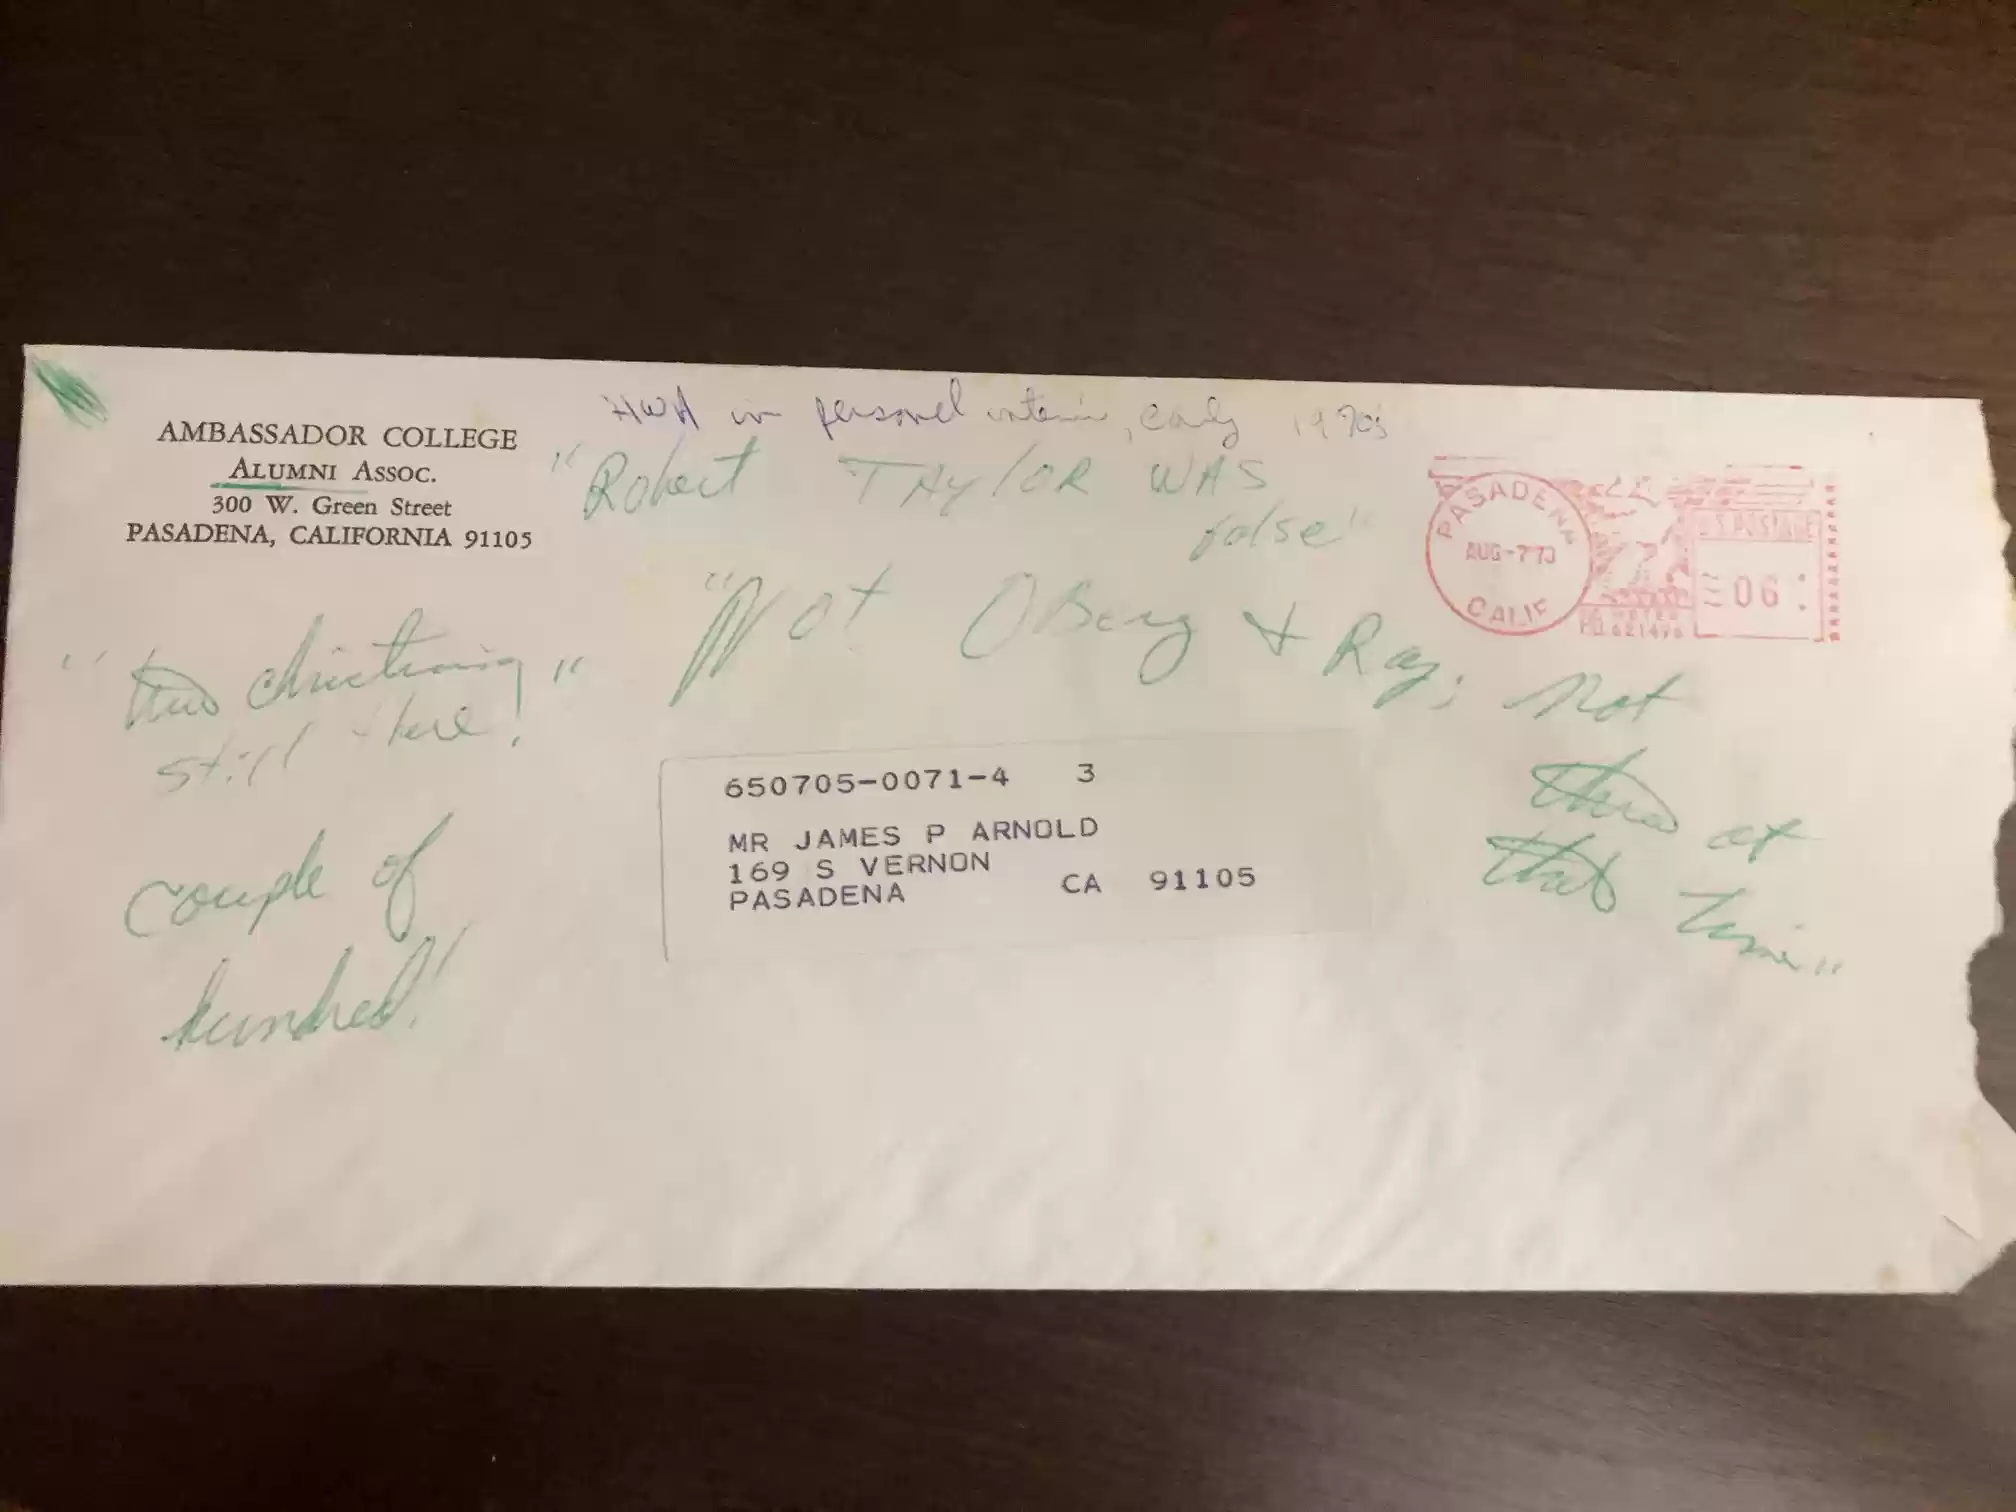 HWA in personel interview, early 1970s
AMBASSADOR COLLEGE
ALUMNI ASSOC.
300 W. Green Street
PASADENA, CALIFORNIA 91105
"Robert TAYLOR WAS
false"
"Not OBerg & Ray; not
at
that time"
"
still there!"
couple of
hundred!
PASADENA
AUG-7'70
CALIF
U.S. POSTAGE
06
650705-0071-4 3
MR JAMES P ARNOLD
169 S VERNON
PASADENA CA 91105